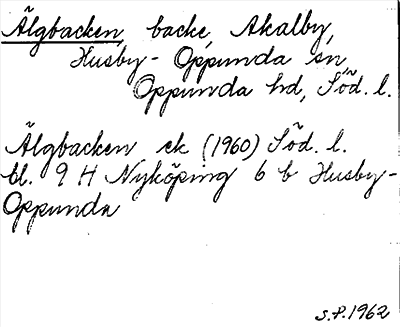 Älgbacken, backe, Akalby,
Husby-Oppunda sn,
Oppunda hd, Söd. l.
Älgbacken ek (1960) Söd. l.
bl. 9 H Nyköping 6 b Husby-
Oppunda
S.P. 1962